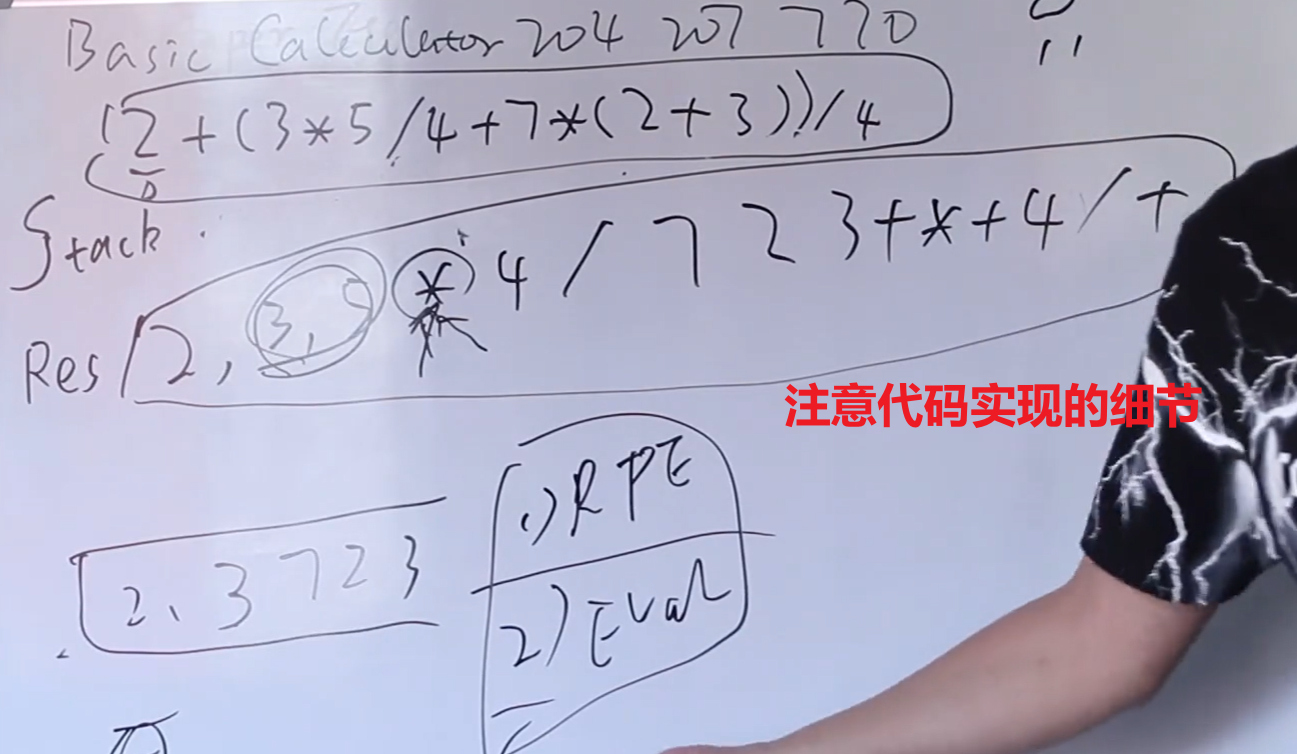 Basic Calculator 204 207 770
(2+(3*5/4+7*(2+3))/4
Stack
Res 2, 3, 5 * 4 / 7 2 3 + * + 4 / +
注意代码实现的细节
1) RPE
2, 3 7 2 3
2) Eval